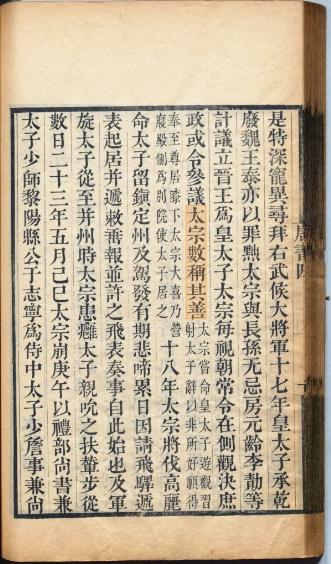 是特深寵異尋拜右武候大將軍十七年皇太子承乾
廢魏王泰亦以罪黜太宗與長孫无忌房元齡李勣等
計議立晉王爲皇太子太宗每視朝常令在側觀決庶
政或令參議太宗數稱其善太宗嘗命皇太子遊觀習
射太子辭以非所好願得
奉至尊居膝下太宗大喜乃營
寢殿側爲別院使太子居之十八年太宗將伐高麗
命太子留鎮定州及駕發有期悲啼累日因請飛驛遞
表起居并遞敕垂報並許之飛表奏事自此始也及軍
旋太子從至并州時太宗患癰太子親吮之扶輦步從
數日二十三年五月己巳太宗崩庚午以禮部尚書兼
太子少師黎陽縣公于志寧爲侍中太子少詹事兼尚